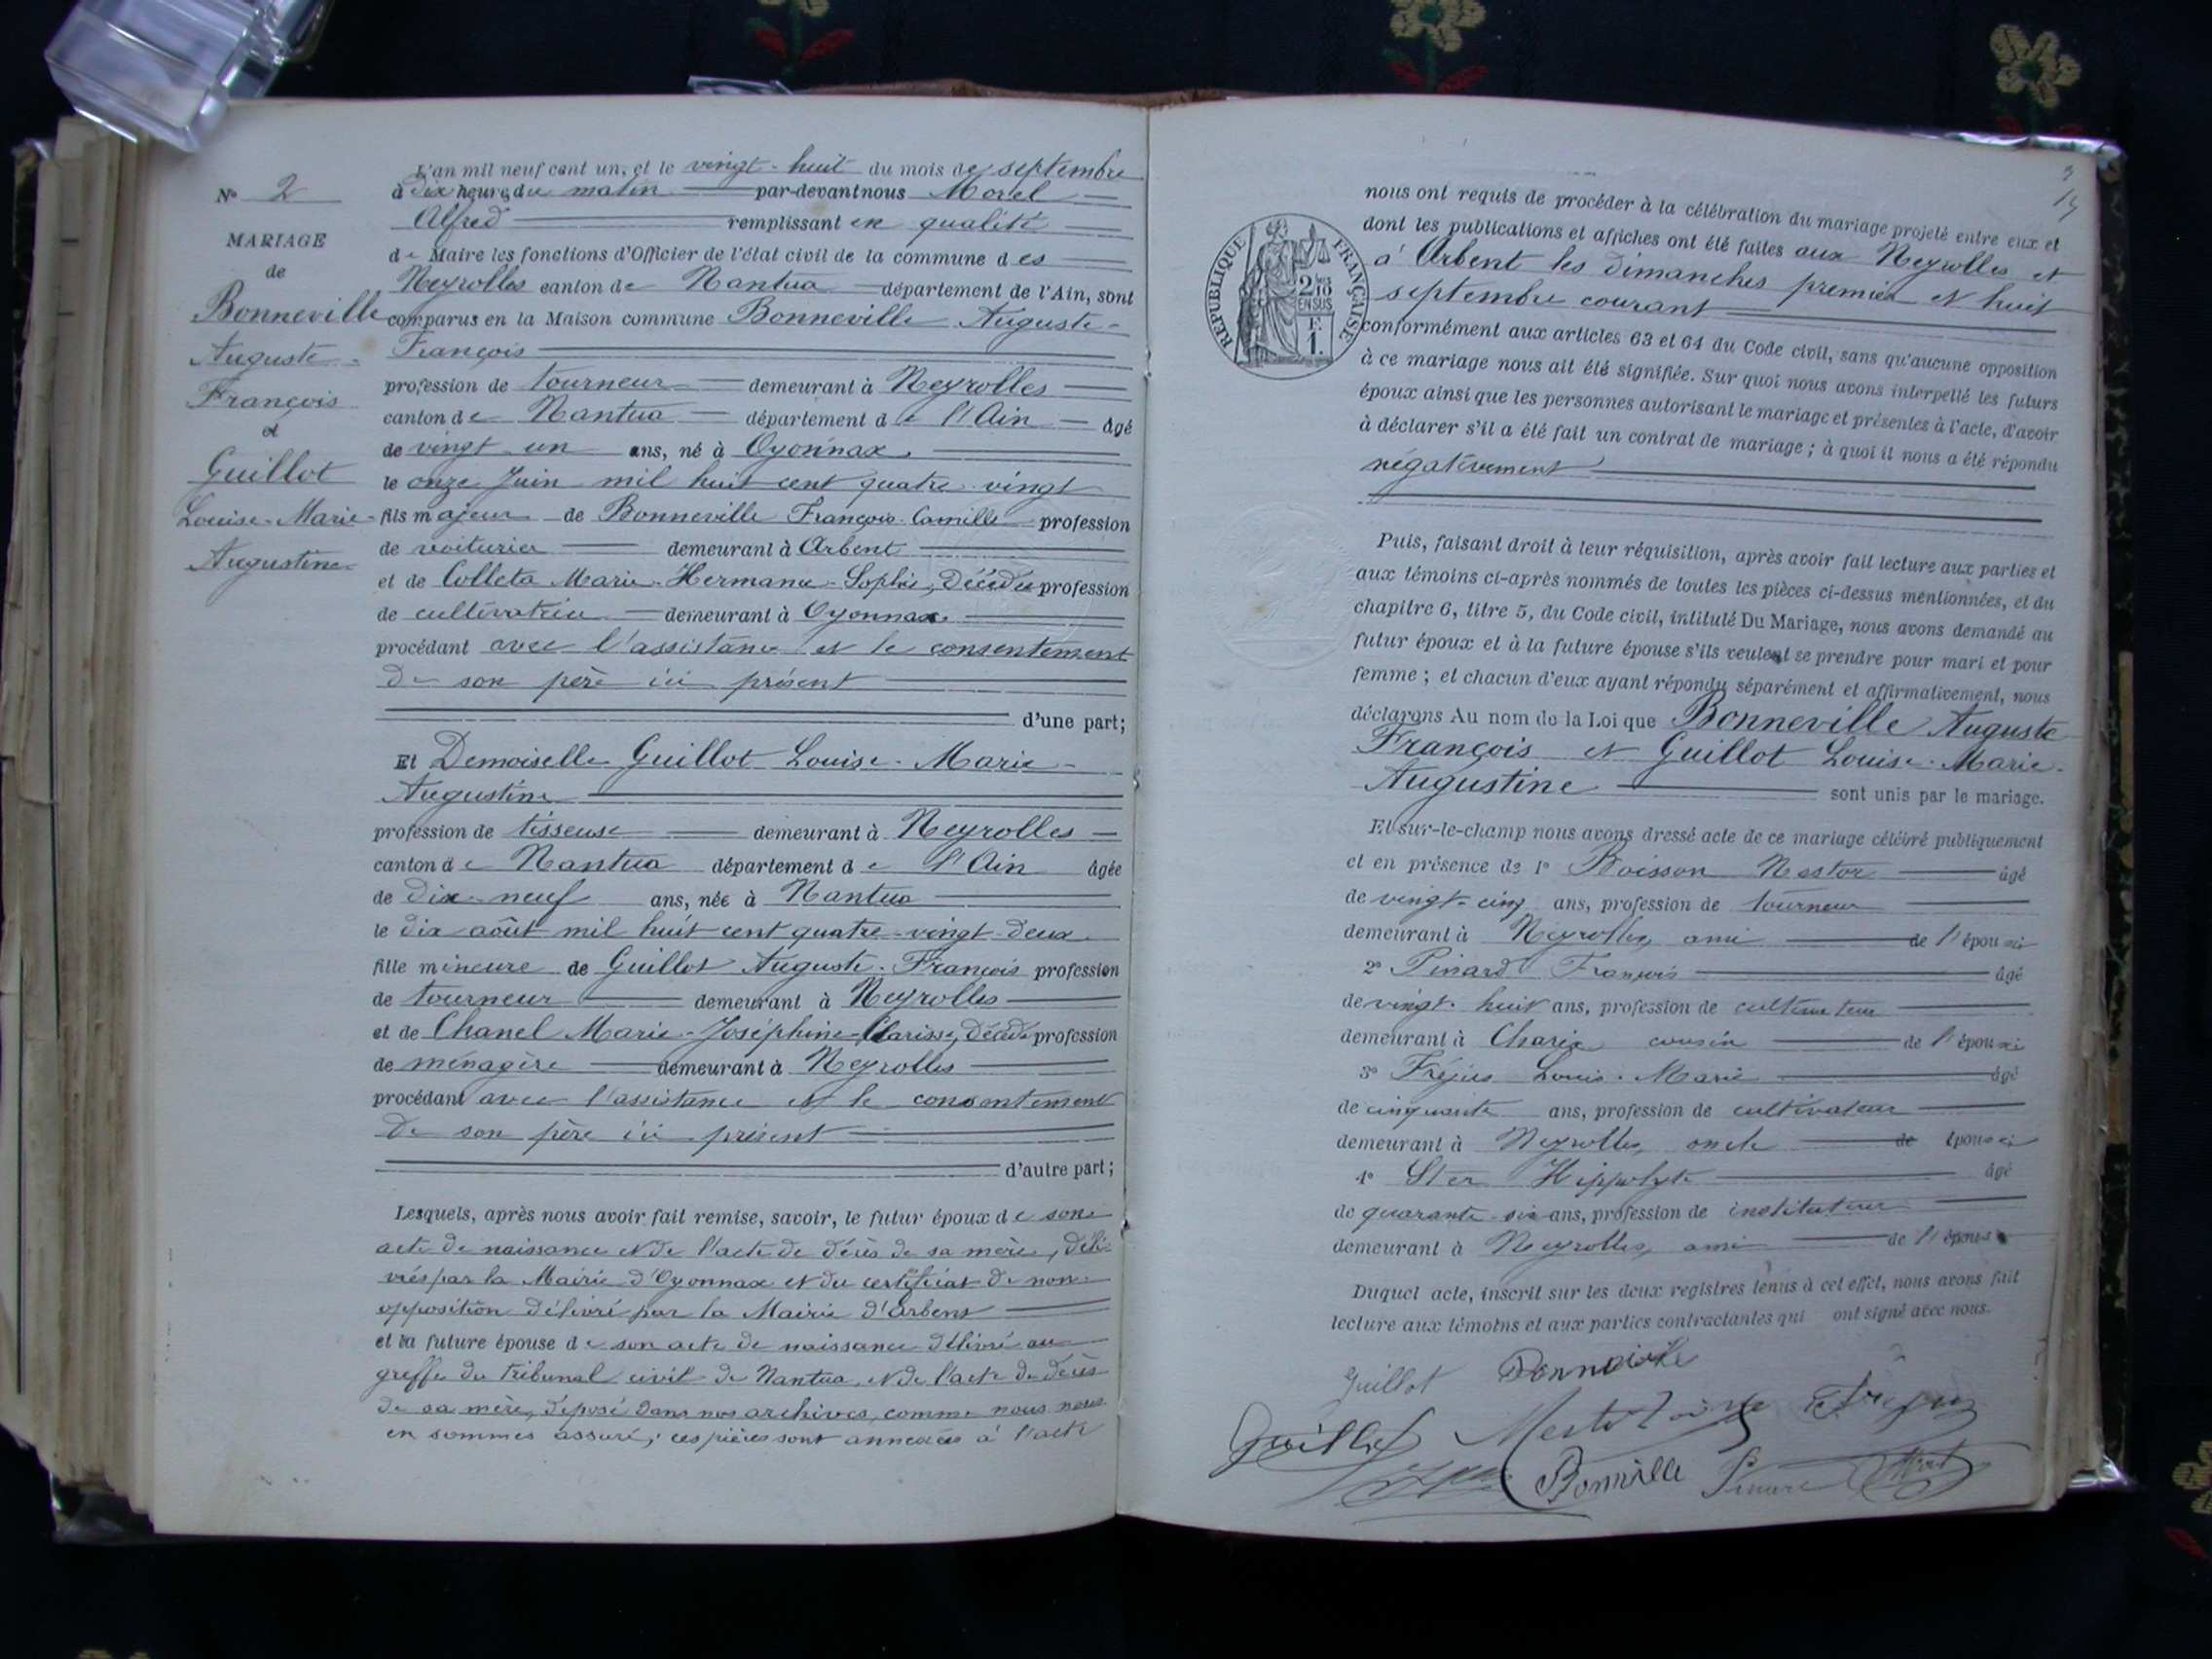 L'an mil neuf cent un, et le vingt-huit du mois de septembre
à dix heures du matin par-devant nous Morel
Alfred remplissant en qualité
de Maire les fonctions d'Officier de l'état civil de la commune des
Neyrolles canton de Nantua département de l'Ain, sont
comparus en la Maison commune Bonneville Auguste-
François
profession de tourneur demeurant à Neyrolles
canton de Nantua département de l'Ain âgé
de vingt-un ans, né à Oyonnax
le onze Juin mil huit cent quatre-vingt
fils majeur de Bonneville François-Camille profession
de voiturier demeurant à Arbent
et de Colleta Marie-Hermance-Sophie, décédée profession
de cultivatrice demeurant à Oyonnax
procédant avec l'assistance et le consentement
de son père ici présent
d'une part;
Et Demoiselle Guillot Louise-Marie-
Augustine
profession de tisseuse demeurant à Neyrolles
canton de Nantua département de l'Ain âgée
de dix-neuf ans, née à Nantua
le dix août mil huit cent quatre-vingt-deux
fille mineure de Guillot Auguste-François profession
de tourneur demeurant à Neyrolles
et de Chanel Marie-Joséphine-Clarisse, décédée profession
de ménagère demeurant à Neyrolles
procédant avec l'assistance et le consentement
de son père ici présent
d'autre part;
Lesquels, après nous avoir fait remise, savoir, le futur époux de son
acte de naissance et de l'acte de décès de sa mère, déli-
vrés par la Mairie d'Oyonnax et du certificat de non
opposition délivré par la Mairie d'Arbent
et la future épouse de son acte de naissance délivré au
greffe du tribunal civil de Nantua, et de l'acte de décès
de sa mère, déposé dans nos archives, comme nous nous
en sommes assuré; ces pièces sont annexées à l'acte
N° 2
MARIAGE
de
Bonneville
Auguste-
François
et
Guillot
Louise-Marie-
Augustine
3
RÉPUBLIQUE FRANÇAISE
2/10
EN SUS
F.
1.
nous ont requis de procéder à la célébration du mariage projeté entre eux et
dont les publications et affiches ont été faites aux Neyrolles et
à Arbent les dimanches premier et huit
septembre courant
conformément aux articles 63 et 64 du Code civil, sans qu'aucune opposition
à ce mariage nous ait été signifiée. Sur quoi nous avons interpellé les futurs
époux ainsi que les personnes autorisant le mariage et présentes à l'acte, d'avoir
à déclarer s'il a été fait un contrat de mariage; à quoi il nous a été répondu
négativement
Puis, faisant droit à leur réquisition, après avoir fait lecture aux parties et
aux témoins ci-après nommés de toutes les pièces ci-dessus mentionnées, et du
chapitre 6, titre 5, du Code civil, intitulé Du Mariage, nous avons demandé au
futur époux et à la future épouse s'ils veulent se prendre pour mari et pour
femme; et chacun d'eux ayant répondu séparément et affirmativement, nous
déclarons Au nom de la Loi que Bonneville Auguste
François et Guillot Louise-Marie-
Augustine sont unis par le mariage.
Et sur-le-champ nous avons dressé acte de ce mariage célébré publiquement
et en présence de 1° Poisson Nestor âgé
de vingt-cinq ans, profession de tourneur
demeurant à Neyrolles, ami de l'époux
2° Pinard François âgé
de vingt-huit ans, profession de cultivateur
demeurant à Charix cousin de l'épouse
3° Fréjus Louis-Marie âgé
de cinquante ans, profession de cultivateur
demeurant à Neyrolles, oncle de épouse
4° Hippolyte âgé
de quarante-six ans, profession de instituteur
demeurant à Neyrolles, ami de l'épouse
Duquel acte, inscrit sur les deux registres tenus à cet effet, nous avons fait
lecture aux témoins et aux parties contractantes qui ont signé avec nous.
Guillot Bonneville
Guillot
Bonneville Pinard